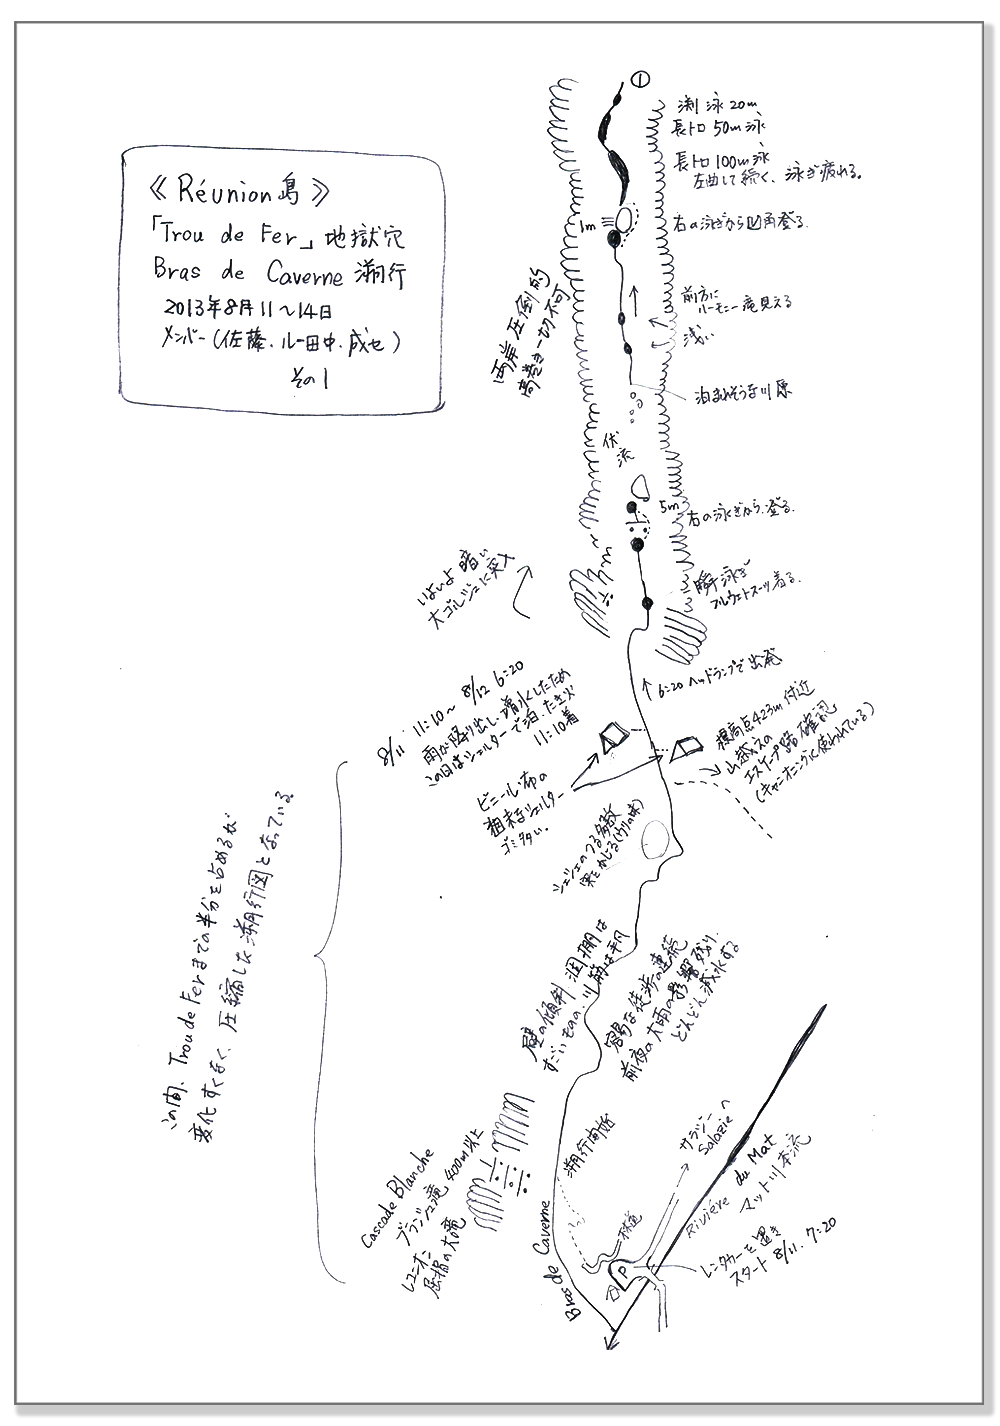 《Réunion島》
「Trou de Fer」地獄穴
Bras de Caverne 遡行
2013年8月11〜14日
メンバー(佐藤、ルー田中、成セ)
その1
①
渕 泳 20m
長トロ 50m 泳
長トロ 100m 泳
左曲して続く、泳ぎ疲れる。
1m
右の泳ぎから凹角登る。
両岸圧倒的
高巻き一切不可
前方に
ハーモニー滝見える
浅い
泊まれそうな川原
伏流
5m
右の泳ぎから、登る。
いよいよ暗い
大ゴルジュに突入
一瞬泳ぎ
フルウェットスーツ着る。
6:20 ヘッドランプで出発
8/11 11:10〜 8/12 6:20
雨が降り出し、増水したため
この日はシェルターで泊、たき火
11:10着
標高点423m付近
山越えの
エスケープ路確認
(キャニオニングに使われている)
ビニール布の
粗末なシェルター
ゴミ多い。
シュシュのつる多数
実をかじる(ウリの味)
この間、Trou de Ferまでの半分を占めるが
変化すくなく、圧縮した遡行図となっている。
壁の傾斜、涸棚は
すごいものの、川筋は平凡
容易な徒歩の連続
前夜の大雨の影響残り、
どんどん減水する
Cascade Blanche
ブランシュ滝 400m以上
レユニオン
屈指の大滝
遡行開始
サラジーへ
Salazie
Rivière du Mat
マット川本流
林道
P
レンタカーを置き
スタート 8/11. 7:20
Bras de Caverne